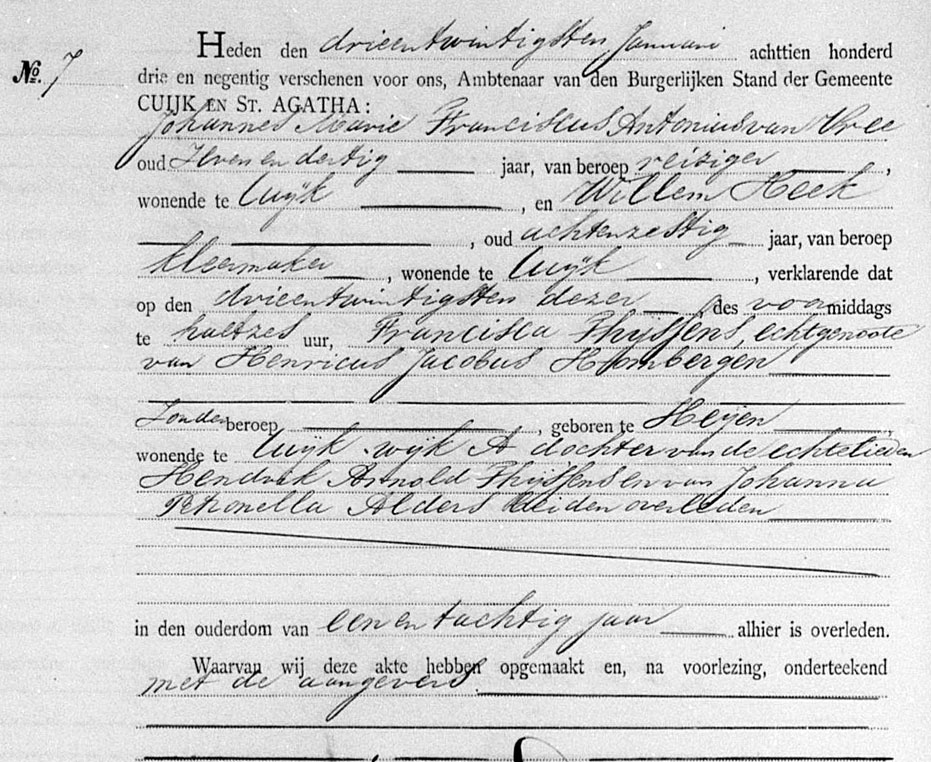 Heden den drieentwintigsten Januari achttien honderd
No. 7
drie en negentig verschenen voor ons, Ambtenaar van den Burgerlijken Stand der Gemeente
CUIJK EN ST. AGATHA:
Johannes Marie Franciscus Antonius van Vree
oud Zeven en dertig jaar, van beroep reiziger,
wonende te Cuijk, en Willem Heek
, oud achtenzestig jaar, van beroep
kleermaker, wonende te Cuijk, verklarende dat
op den drieentwintigsten dezer des voormiddags
te halfzes uur, Francisca Thijssens, echtgenoote
van Henricus Jacobus Hombergen
Zonder beroep, geboren te Heijen,
wonende te Cuijk wijk A dochter van de echtelieden
Hendrik Arnold Thijssens en van Johanna
Petronella Alders beiden overleden
in den ouderdom van een en tachtig jaar alhier is overleden.
Waarvan wij deze akte hebben opgemaakt en, na voorlezing, onderteekend
met de aangevers.